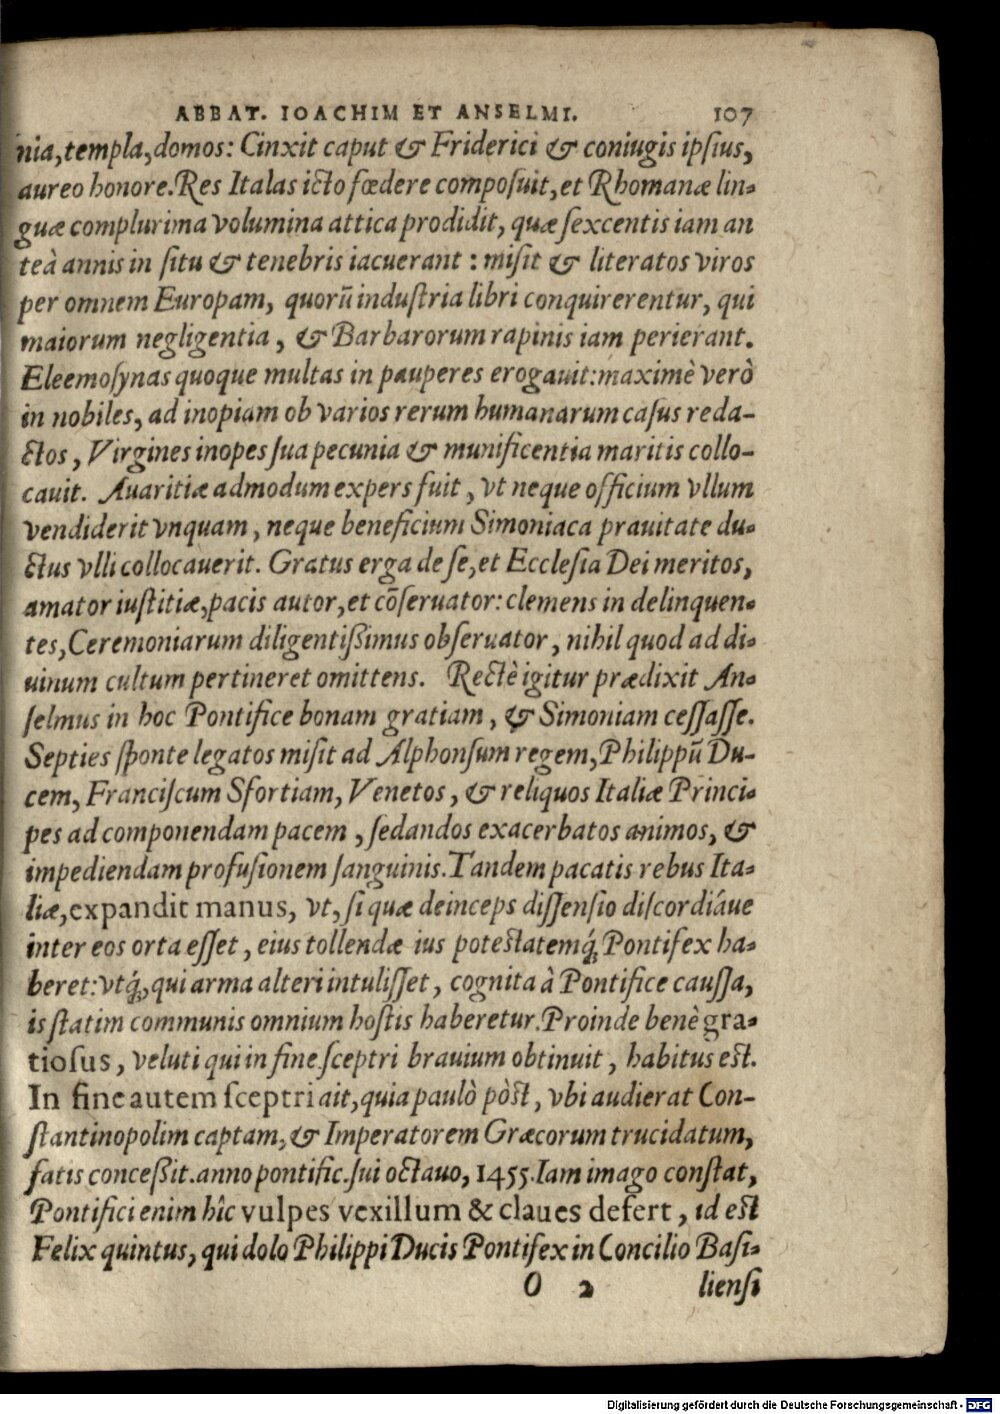 ABBAT. IOACHIM ET ANSELMI. 107
nia, templa, domos: Cinxit caput & Friderici & coniugis ipſius,
aureo honore. Res Italas icto fœdere compoſuit, et Rhomanæ lin-
guæ complurima volumina attica prodidit, quæ ſexcentis iam an
teà annis in ſitu & tenebris iacuerant: miſit & literatos viros
per omnem Europam, quorũ induſtria libri conquirerentur, qui
maiorum negligentia, & Barbarorum rapinis iam perierant.
Eleemoſynas quoque multas in pauperes erogauit: maximè verò
in nobiles, ad inopiam ob varios rerum humanarum caſus reda-
ctos, Virgines inopes ſua pecunia & munificentia maritis collo-
cauit. Auaritiæ admodum expers fuit, vt neque officium vllum
vendiderit vnquam, neque beneficium Simoniaca prauitate du-
ctus vlli collocauerit. Gratus erga de ſe, et Eccleſia Dei meritos,
amator iuſtitiæ, pacis autor, et cõſeruator: clemens in delinquen-
tes, Ceremoniarum diligentißimus obſeruator, nihil quod ad di-
uinum cultum pertineret omittens. Rectè igitur prædixit An-
ſelmus in hoc Pontifice bonam gratiam, & Simoniam ceſſaſſe.
Septies ſponte legatos miſit ad Alphonſum regem, Philippũ Du-
cem, Franciſcum Sfortiam, Venetos, & reliquos Italiæ Princi-
pes ad componendam pacem, ſedandos exacerbatos animos, &
impediendam profuſionem ſanguinis. Tandem pacatis rebus Ita-
liæ, expandit manus, vt, ſi quæ deinceps diſſenſio diſcordiáue
inter eos orta eſſet, eius tollendæ ius poteſtatemq́; Pontifex ha-
beret: vtq́;, qui arma alteri intuliſſet, cognita à Pontifice cauſſa,
is ſtatim communis omnium hoſtis haberetur. Proinde benè gra-
tioſus, veluti qui in fine ſceptri brauium obtinuit, habitus est.
In fine autem ſceptri ait, quia paulò pòſt, vbi audierat Con-
ſtantinopolim captam, & Imperatorem Græcorum trucidatum,
fatis conceßit. anno pontific. ſui octauo, 1455. Iam imago conſtat,
Pontifici enim hîc vulpes vexillum & claues defert, id est
Felix quintus, qui dolo Philippi Ducis Pontifex in Concilio Baſi-
O 2 lienſi
Digitalisierung gefördert durch die Deutsche Forschungsgemeinschaft - DFG